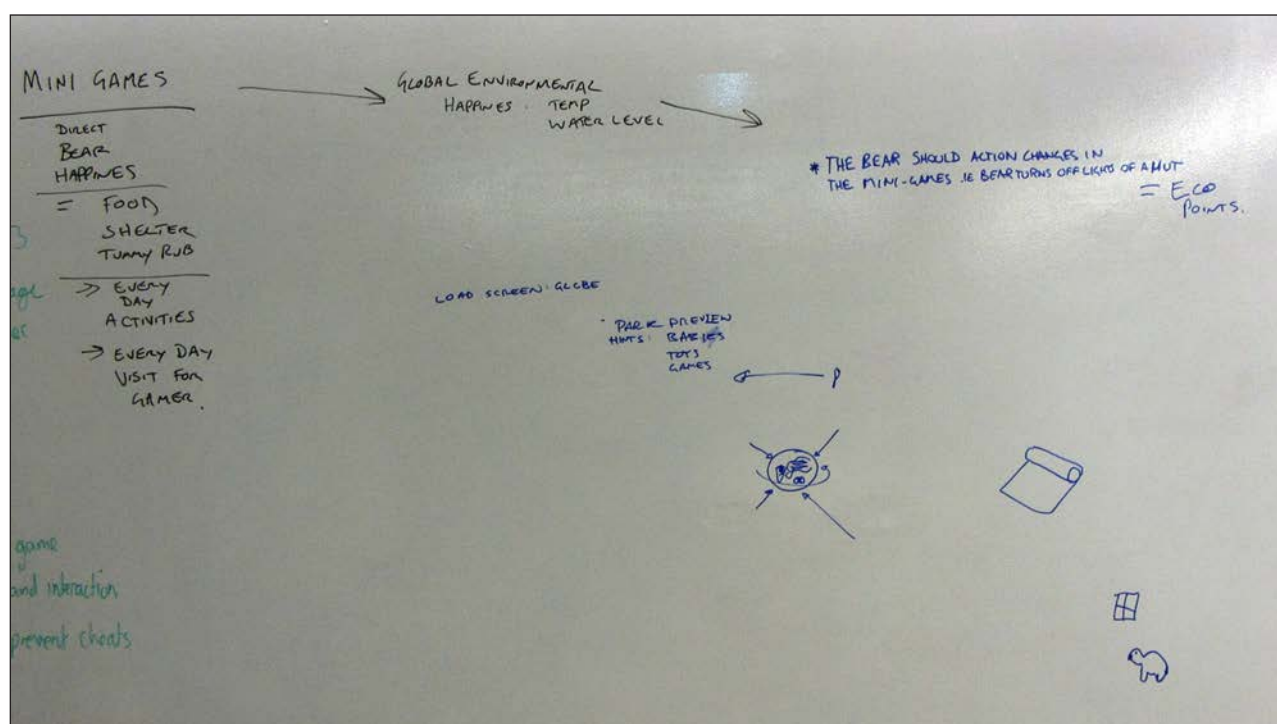 MINI GAMES
DIRECT
BEAR
HAPPINES
= FOOD
SHELTER
TUMMY RUB
→ EVERY
DAY
ACTIVITIES
→ EVERY DAY
VISIT FOR
GAMER.
GLOBAL ENVIRONMENTAL
HAPPINES : TEMP
WATER LEVEL
* THE BEAR SHOULD ACTION CHANGES IN
THE MINI-GAMES .IE BEAR TURNS OFF LIGHTS OF A HUT
= ECO
POINTS.
LOAD SCREEN: GLOBE
PARK PREVIEW
HINTS: BABIES
TOYS
GAMES
game
and interaction
prevent cheats